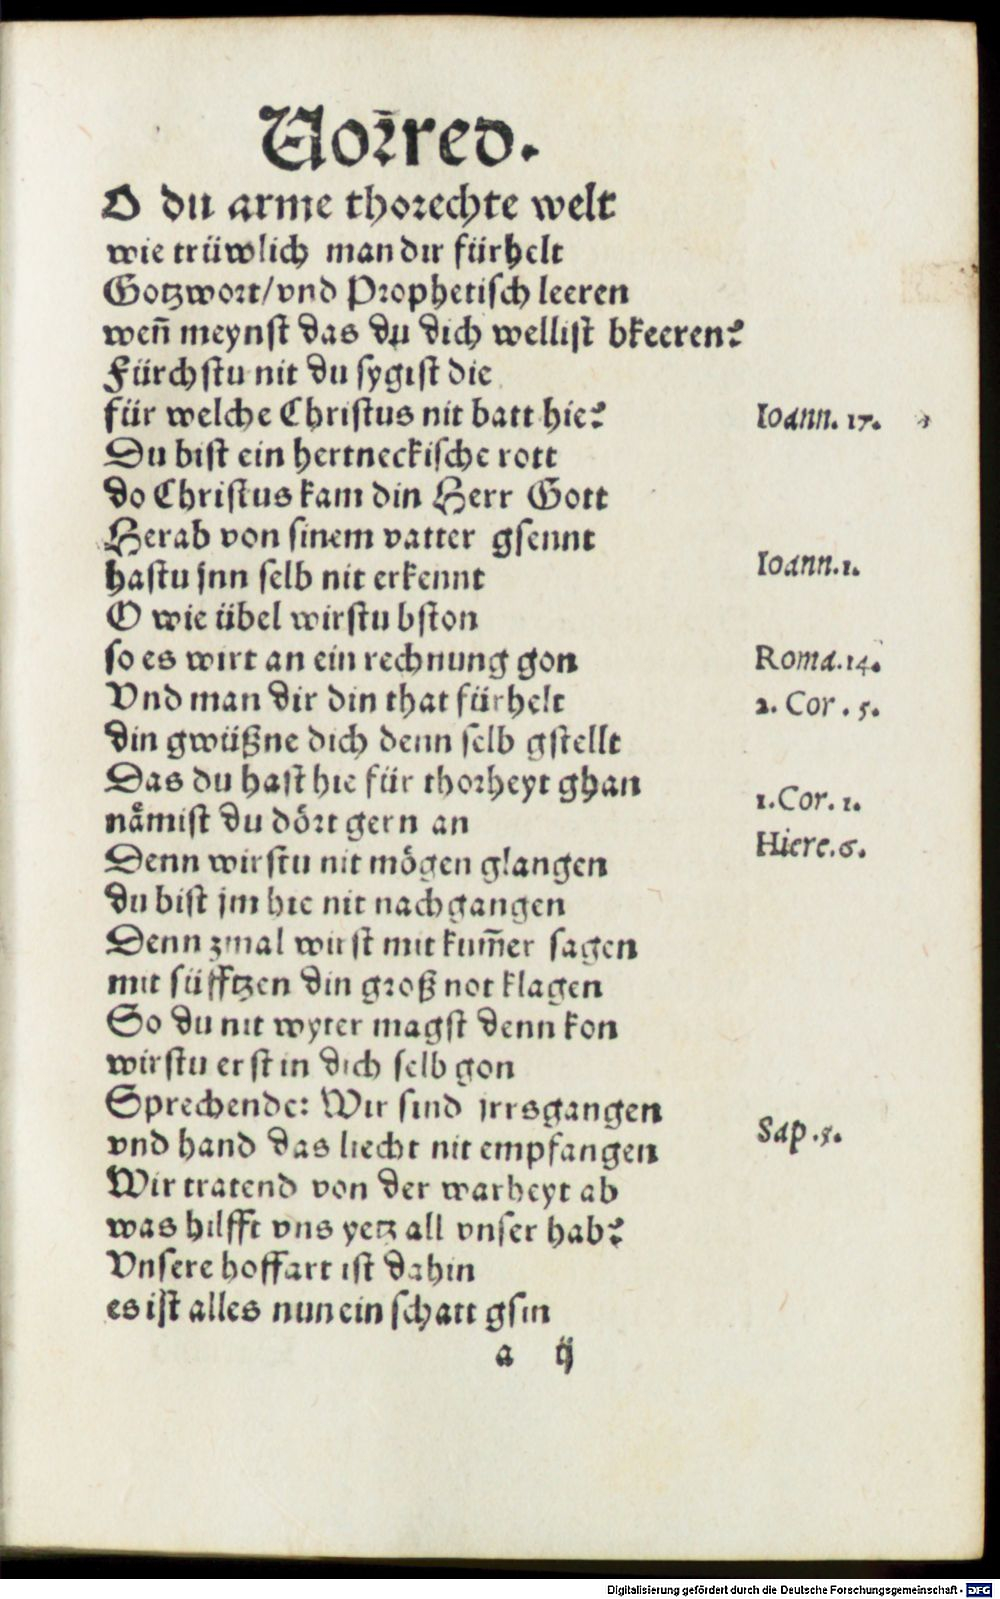 Vorred.
O du arme thorechte welt
wie trüwlich man dir fürhelt
Gotzwort/vnd Prophetisch leeren
weñ meynst das du dich wellist bkeeren?
Fürchstu nit du sygist die
für welche Christus nit batt hie?
Ioann. 17.
Du bist ein hertneckische rott
do Christus kam din Herr Gott
Herab von sinem vatter gsennt
Ioann. 1.
hastu jnn selb nit erkennt
O wie übel wirstu bston
so es wirt an ein rechnung gon
Roma. 14.
Vnd man dir din that fürhelt
2. Cor. 5.
din gwüßne dich denn selb gstellt
Das du hast hie für thorheyt ghan
1. Cor. 1.
nåmist du dört gern an
Hiere. 6.
Denn wirstu nit mögen glangen
du bist jm hie nit nachgangen
Denn zmal wirst mit kum̃er sagen
mit süfftzen din groß not klagen
So du nit wyter magst denn kon
wirstu erst in dich selb gon
Sprechende: Wir sind jrrsgangen
Sap. 5.
vnd hand das liecht nit empfangen
Wir tratend von der warheyt ab
was hilfft vns yetz all vnser hab?
Vnsere hoffart ist dahin
es ist alles nun ein schatt gsin
a ij
Digitalisierung gefördert durch die Deutsche Forschungsgemeinschaft - DFG